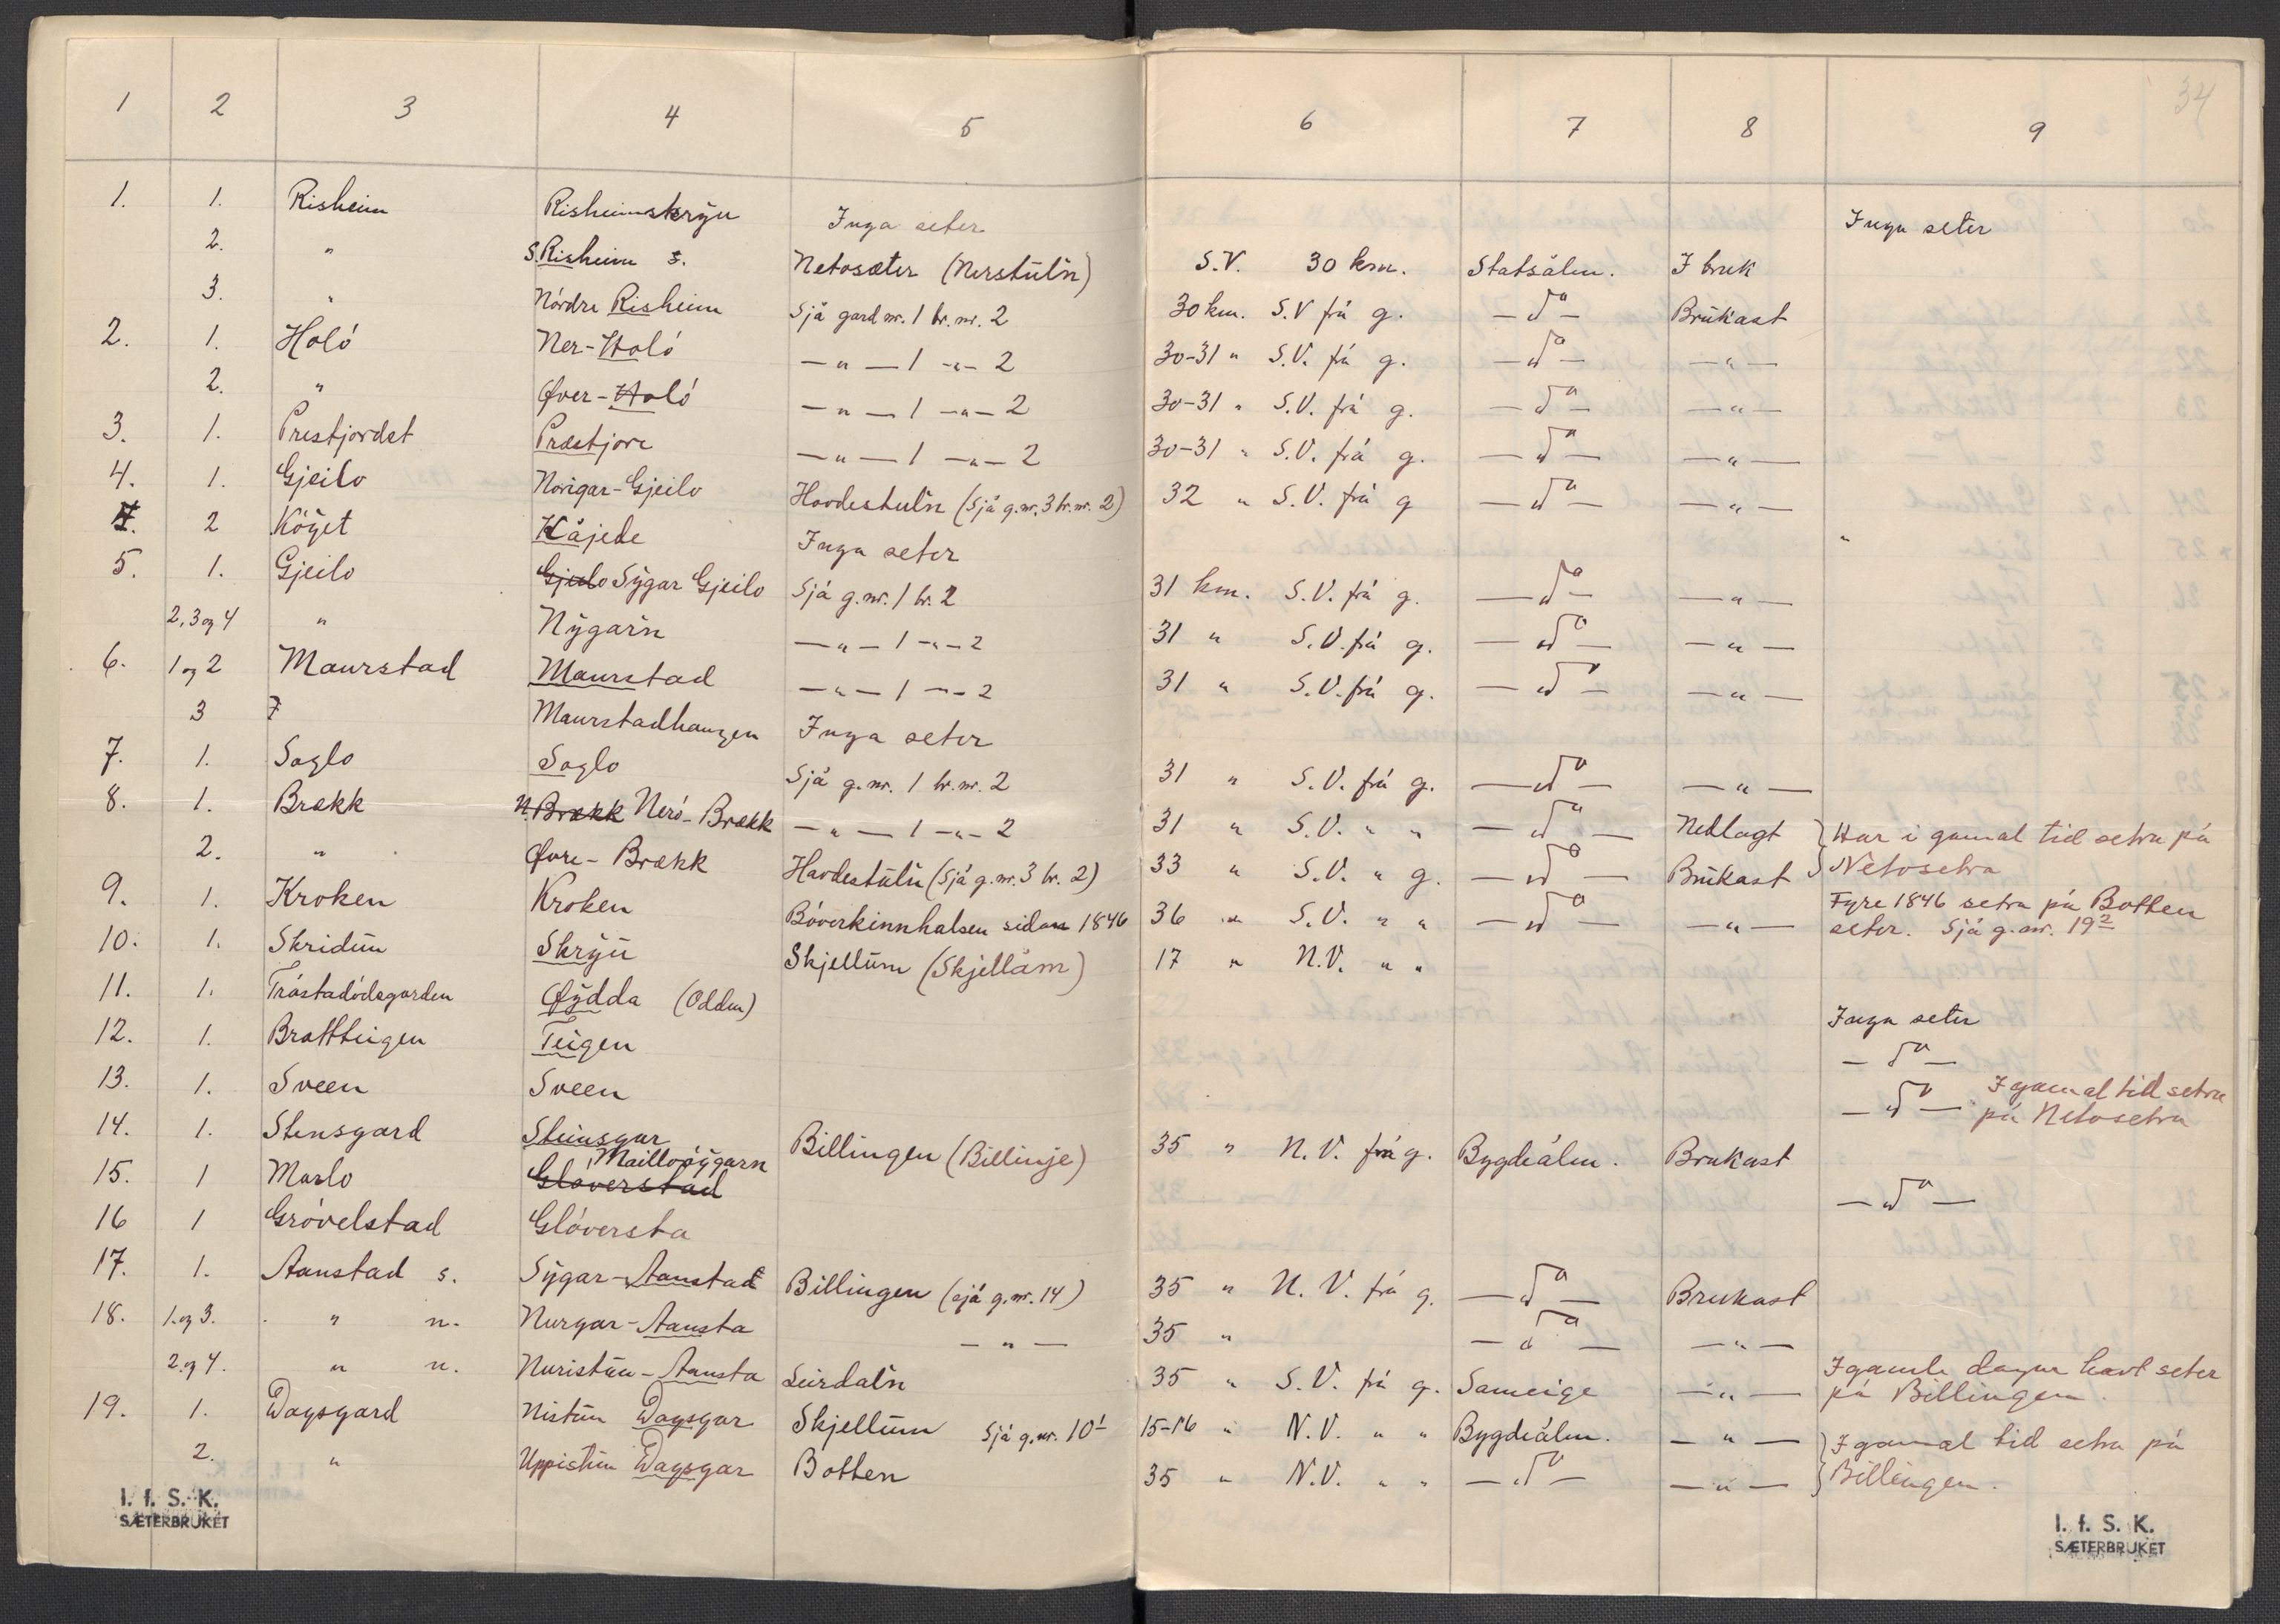 34
1 2 3 4 5 6 7 8 9
1. 1. Risheim Risheimskrÿu Inga seter Inga seter
2. " S. Risheim s. Netosæter (Nerstuln) S.V. 30 km. Statsålm. I bruk
3. " Nórdre Risheim Sjå gard nr. 1 br. nr. 2 30 km. S.V frå g. — do — Brukast
2. 1. Holó Ner-Holó — " — 1 - " - 2 30-31 " S.V. frå g. — do — — " —
2. " Øver-Holó — " — 1 — " — 2 30-31 " S.V. frå g. — do — — " —
3. 1. Prestjordet Præstjore — " — 1 — " — 2 30-31 " S.V. frå g. — do — — " —
4. 1. Gjeilo Norigar-Gjeilo Hovdestuln (Sjå g.nr. 3 br.nr. 2) 32 " S.V. frå g — do — — " —
4. 2 Köyet Kåjede Inga seter "
5. 1. Gjeilo Gjeilo Sÿgar Gjeilo Sjå g.nr. 1 br. 2 31 km. S.V. frå g. — do — — " —
2, 3 og 4 " Nÿgarn — " — 1 - " - 2 31 " S.V. frå g. — do — — " —
6. 1 og 2 Maurstad Maurstad — " — 1 - " - 2 31 " S.V. frå g. — do — — " —
3 Maurstadhaugen Inga seter
7. 1. Soglo Soglo Sjå g.nr. 1 br.nr. 2 31 " S.V. frå g. — do — — " —
8. 1. Brækk N. Brækk Neró-Brækk — " — 1 — " — 2 31 " S.V. " " — do — Nedlagt } Har i gamal tid setra på
2. " Øvre-Brækk Hovdestuln (Sjå g.nr. 3 br. 2) 33 " S.V. " g. — do — Brukast } Netosetra
9. 1. Kroken Kroken Bóverkinnhalsen sidan 1846 36 " S.V. " " — do — — " — Fyre 1846 setra på Botten
seter. Sjå g.nr. 19²
10. 1. Skridun Skrÿu Skjellum (Skjellåm) 17 " N.V. " "
11. 1. Tråstadódegarden Øÿdda (Odden) Inga seter
12. 1. Brattteigen Teigen — do —
13. 1. Sveen Sveen — do — I gamal tid setra
på Netosetra
14. 1. Stensgard Steinsgar Billingen (Billinje) 35 " N.V. frå g. Bygdeålm. Brukast
15. 1 Marlo Mailloóÿgarn Glóverstad — do —
16 1 Gróvelstad Glóversta
17. 1. Aanstad s. Sÿgar-Aanstad Billingen (sjå g.nr. 14) 35 " N.V. frå g. — do — Brukast
18. 1. og 3. " n. Nurgar-Aansta — " — 35 " — do — — " —
2. og 4. " n. Nuristun-Aansta Leirdaln 35 " S.V. frå g. Sameige — " — I gamle dagar havt seter
på Billingen.
19. 1. Dagsgard Nistun Dagsgar Skjellum Sjå g.nr. 10¹ 15-16 " N.V. " " Bygdeålm. — " — } I gamal tid setra på
2. " Uppistun Dagsgar Botten 35 " N.V. " " — do — — " — } Billingen.
I. f. S. K.
SÆTERBRUKET
I. f. S. K.
SÆTERBRUKET